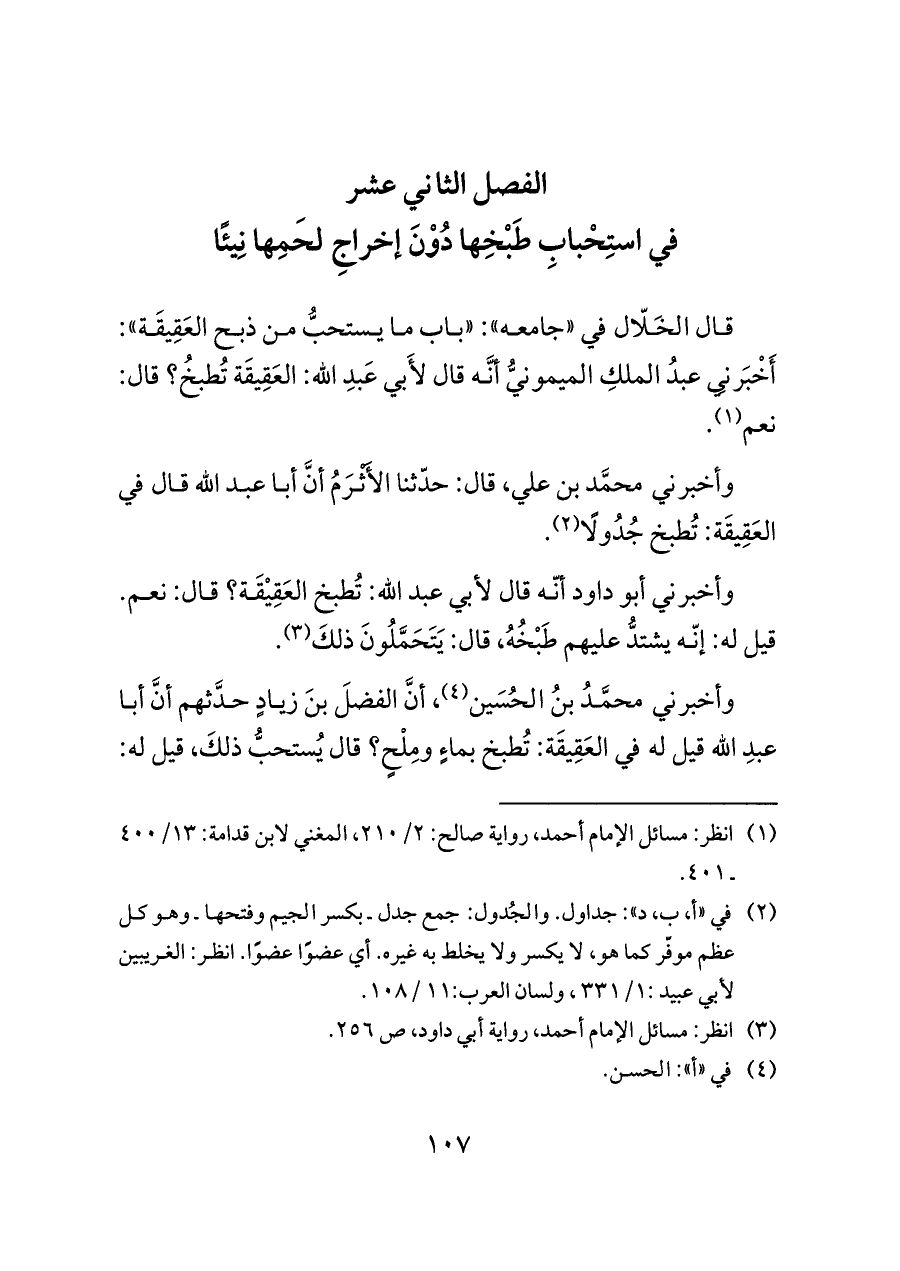 الفصل الثاني عشر
في استِحْبابِ طَبْخِها دُوْنَ إخراجِ لحَمِها نِيئًا
قال الخَلّال في «جامعه»: «باب ما يستحبُّ من ذبح العَقِيقَة»:
أَخْبَرنِي عبدُ الملكِ الميمونيُّ أنَّه قال لأَبي عَبدِ الله: العَقِيقَة تُطبخُ؟ قال:
نعم(١).
وأخبرني محمَّد بن علي، قال: حدّثنا الأَثْرَمُ أنَّ أبا عبد الله قال في
العَقِيقَة: تُطبخ جُدُولًا(٢).
وأخبرني أبو داود أنّه قال لأبي عبد الله: تُطبخ العَقِيْقَة؟ قال: نعم.
قيل له: إنّه يشتدُّ عليهم طَبْخُهُ، قال: يَتَحَمَّلُونَ ذلكَ(٣).
وأخبرني محمَّدُ بنُ الحُسَين(٤)، أنَّ الفضلَ بنَ زيادٍ حدَّثهم أنَّ أبا
عبدِ الله قيل له في العَقِيقَة: تُطبخ بماءٍ ومِلْحٍ؟ قال يُستحبُّ ذلكَ، قيل له:
(١) انظر: مسائل الإمام أحمد، رواية صالح: ٢/ ٢١٠، المغني لابن قدامة: ١٣/ ٤٠٠
ـ ٤٠١.
(٢) في «أ، ب، د»: جداول. والجُدول: جمع جدل ـ بكسر الجيم وفتحها ـ وهو كل
عظم موفّر كما هو، لا يكسر ولا يخلط به غيره. أي عضوًا عضوًا. انظر: الغريبين
لأبي عبيد :١/ ٣٣١ ، ولسان العرب:١١ / ١٠٨.
(٣) انظر: مسائل الإمام أحمد، رواية أبي داود، ص ٢٥٦.
(٤) في «أ»: الحسن.
١٠٧